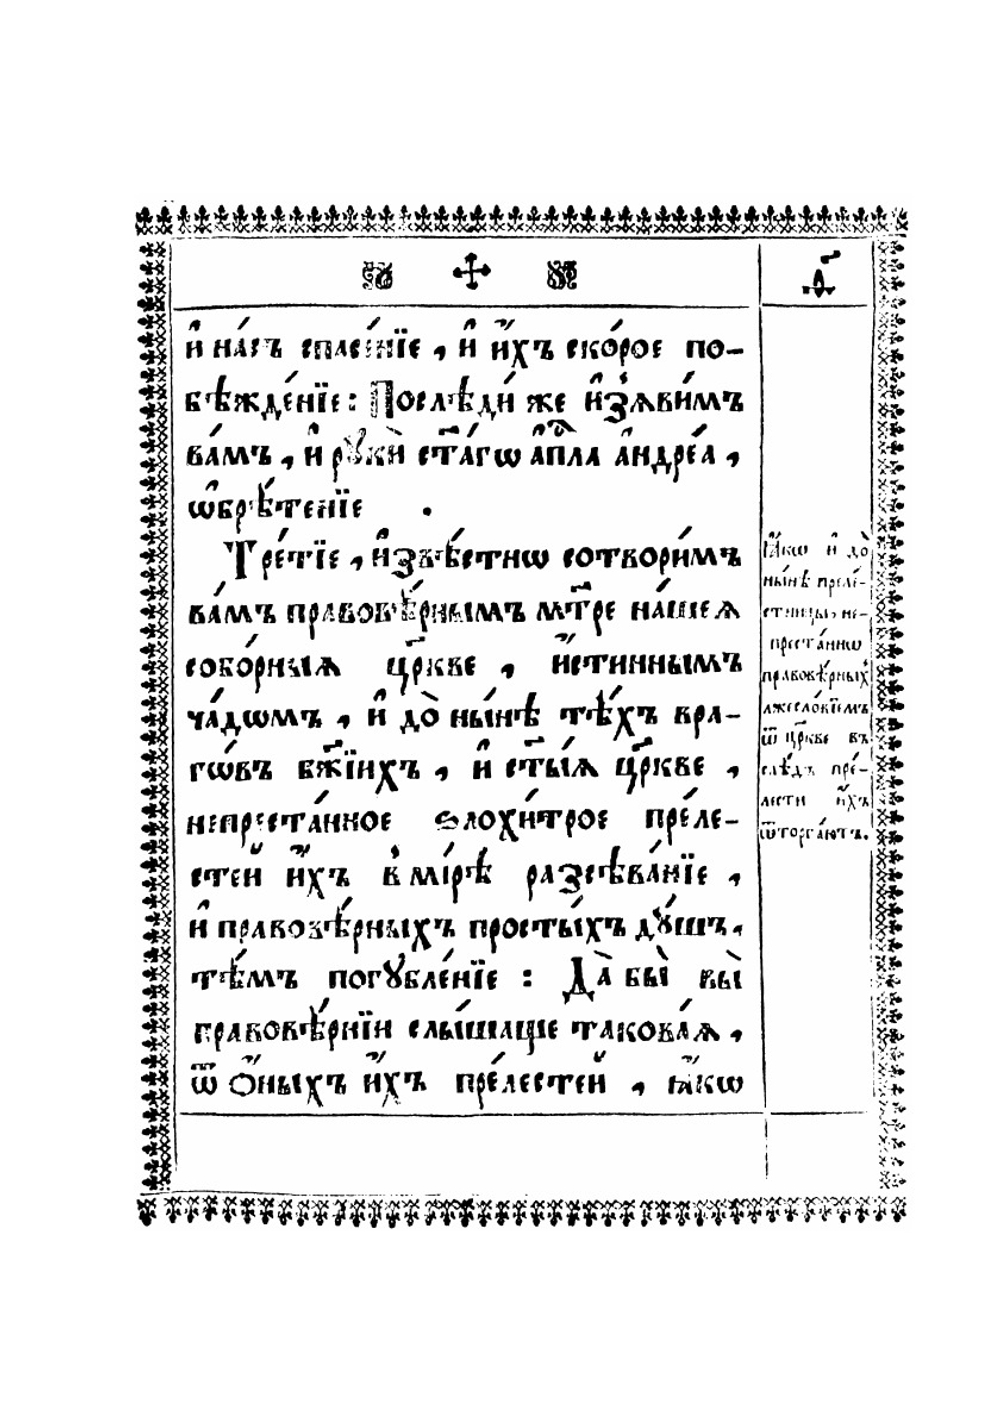 и҆ на́съ спасе́нїе , и҆ и҆́хъ ско́рое по-
бѣжде́нїе : Послѣди́ же и҆з̾ѧви́мъ
ва́мъ , и҆ рꙋкѝ ст҃а́гѡ а҆пⷭ҇ла а҆ндре́а ,
ѡ҆брѣ́тенїе .
Тре́тїе , и҆звѣ́стнѡ сотвори́мъ
ва́мъ правовѣ́рнымъ мт҃ре на́шеѧ
собо́рныѧ цр҃кве , и҆́стиннымъ
ча́дѡмъ , и҆ до̀ ны́нѣ тѣ́хъ вра-
гѡ́въ бж҃їихъ , и҆ ст҃ы́ѧ цр҃кве ,
непреста́нное ѕлохи́трое пре́ле-
стей и҆́хъ в̾ мі́рѣ разсѣва́нїе ,
и҆ правовѣ́рныхъ просты́хъ дꙋ́шъ ,
тѣ́мъ погꙋбле́нїе : Да̀ бы̀ вы̀
правовѣ́рнїи слы́шаще такова́ѧ ,
ѿ Ѻ҆́ныхъ и҆́хъ пре́лестей , ꙗ҆́кѡ
Ꙗ҆́кѡ и҆ до̀
ны́нѣ преле́-
стницы, не-
преста́ннѡ
правовѣ́рныхъ
лжесло́вїемъ
ѿ цр҃кве въ
слѣ́дъ пре́-
лести и҆́хъ
ѿторга́ютъ.